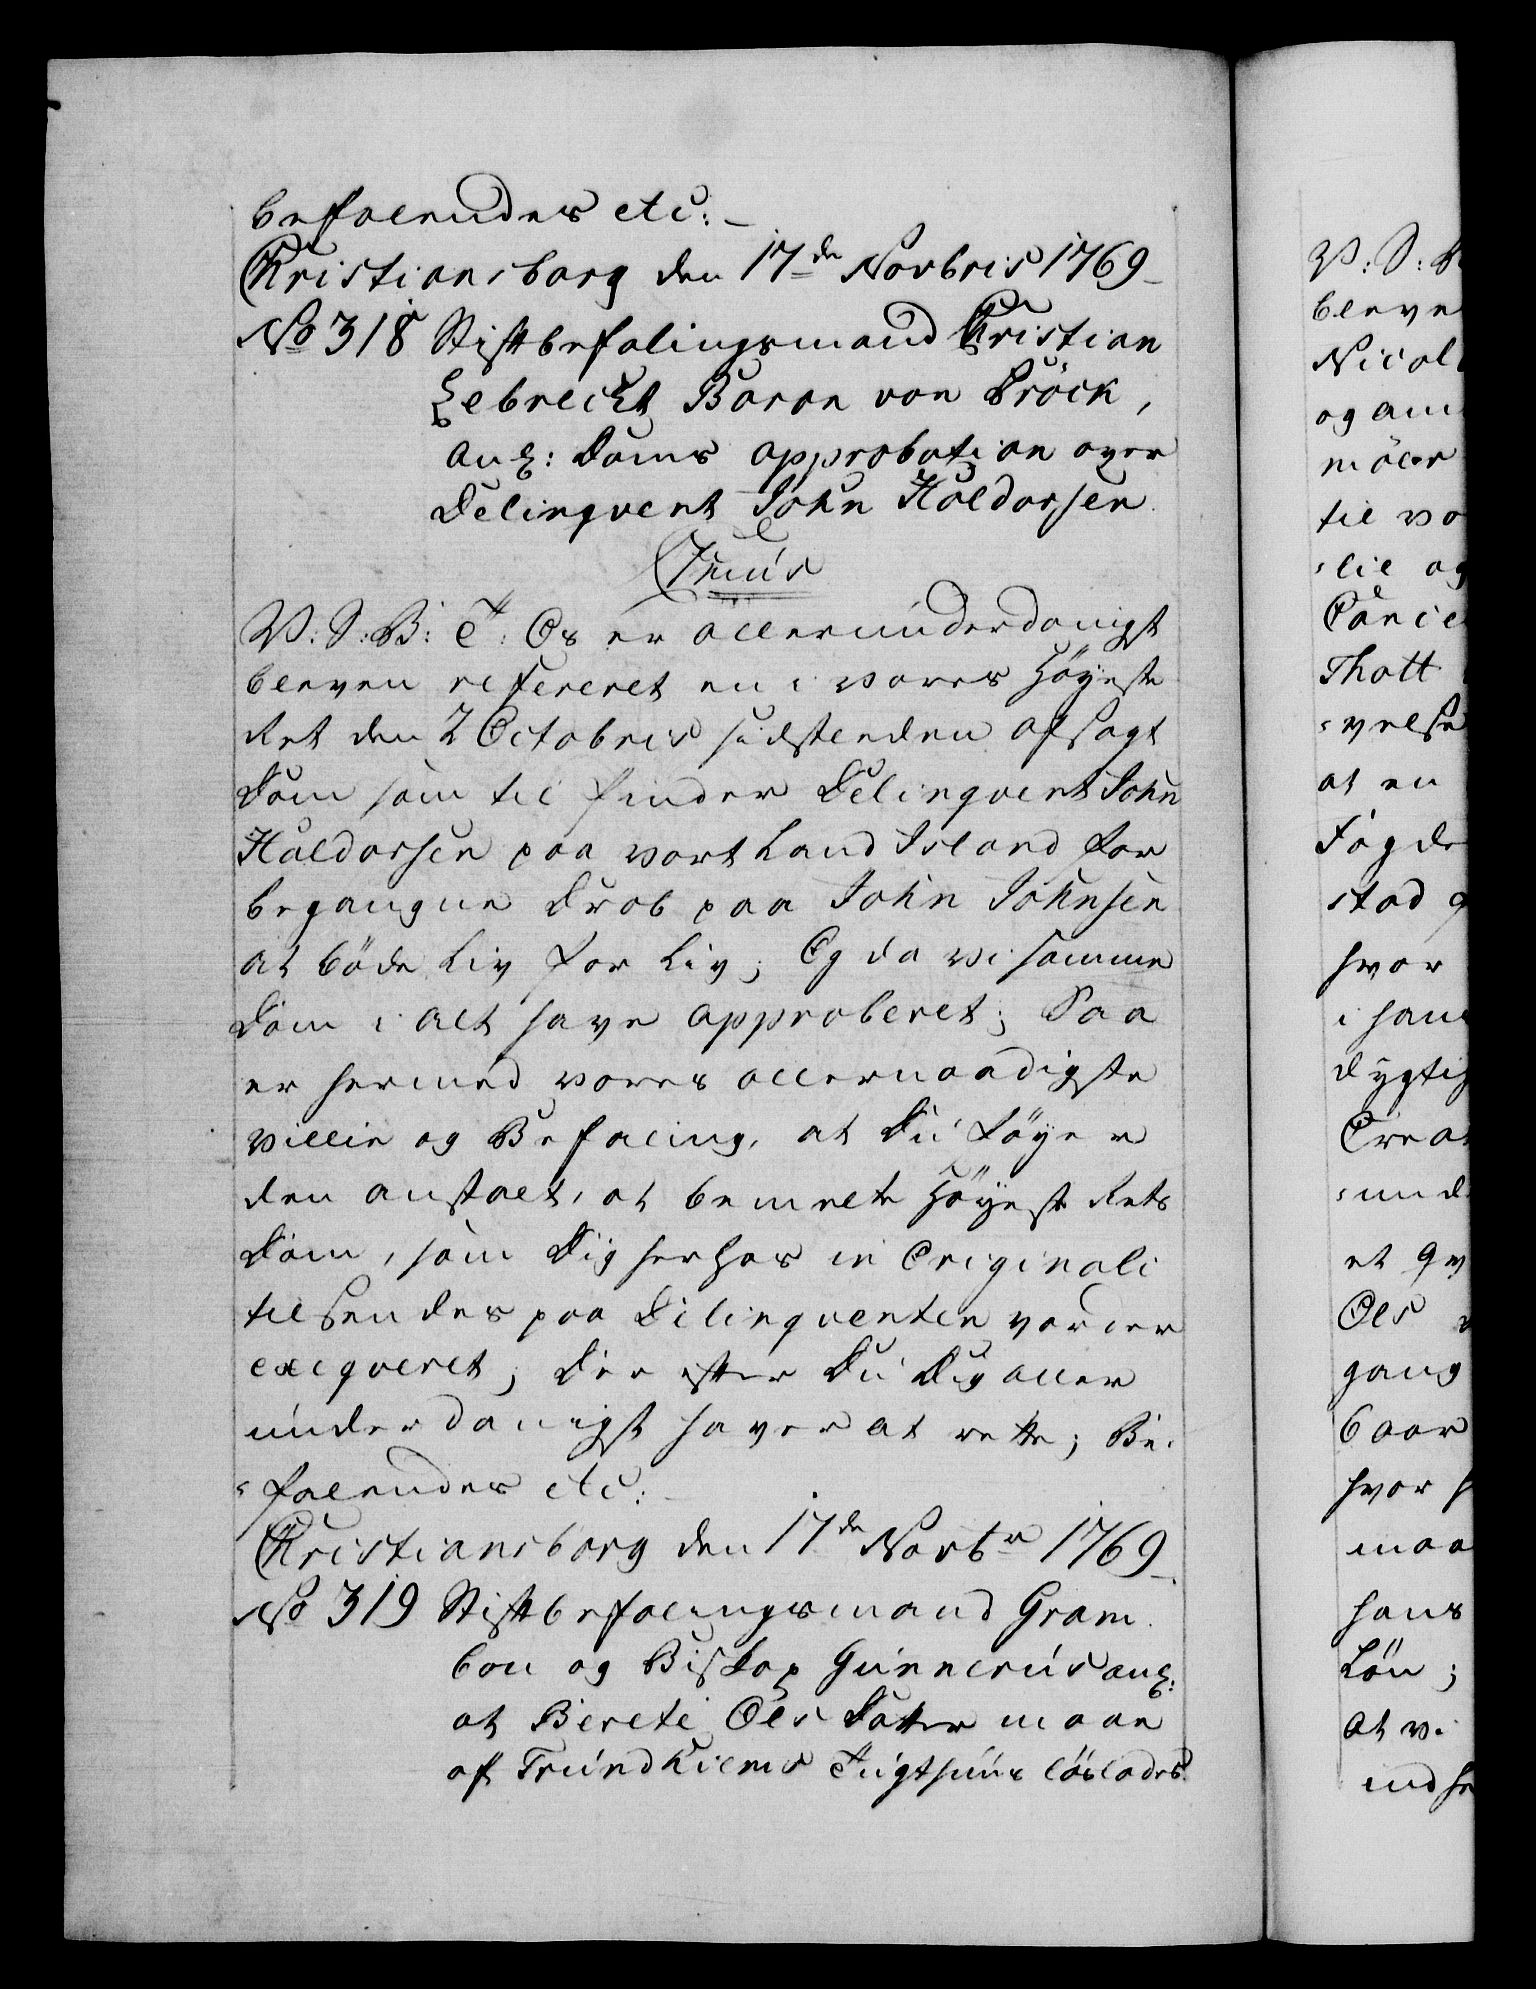 befalendes etc:
Christiansborg den 17de Novbris 1769
No 318 Stiftbefalingsmand Christian
Lebrecht Baron von Pröck,
ang: Doms approbation over
Delinqvent John Haldorsen
Chr: 7mus
V: S: B: T: Os er allerunderdanigst
bleven refereret en i vores Höyeste
Ret den 2 Octobris sidstleden afsagt
Dom som til finder Delinqvent John
Haldorsen paa vort Land Island for
begangne Drab paa John Johnsen
at böde Liv for Liv; Og da vi samme
Dom i alt have approberet; Saa
er hermed vores allernaadigste
villie og Befaling, at Du föyer
den anstalt, at bemelte Höyeste Rets
Dom, som Dig herhos in Originali
tilsendes paa Dilinquenten vorder
exeqveret; Der efter Du Dig aller
underdanigst haver at rette; Be-
falendes etc:
Christiansborg den 17de Novbr 1769
No 319 Stiftbefalingsmand Gram
bou og Biskop Gunnerus ang:
at Berete Ols Datter maae
af Trundhiems Tugthuus löslades
V: S: B
bleve
Nicol
og am
til vo
Cancel
Thott
at en
Fogde
stad
hvor
dygtig
et qv
Ols
gang
hvor
maa
hans
Lön;
at vi